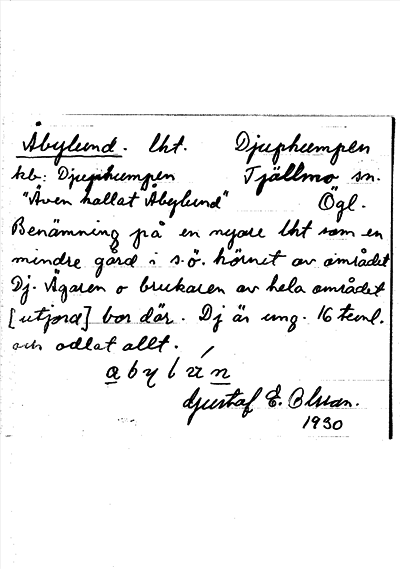 Åbylund. lht. Djuphumpen
kb: Djuphumpen Tjällmo sn.
"Även kallat Åbylund" Ögl.
Benämning på en nyare lht som en
mindre gård i s.ö. hörnet av området
Dj. Ägaren o brukaren av hela området
[utjord] bor där. Dj är ung. 16 tunl.
och odlat allt.
abylún
Gustaf E.
1930